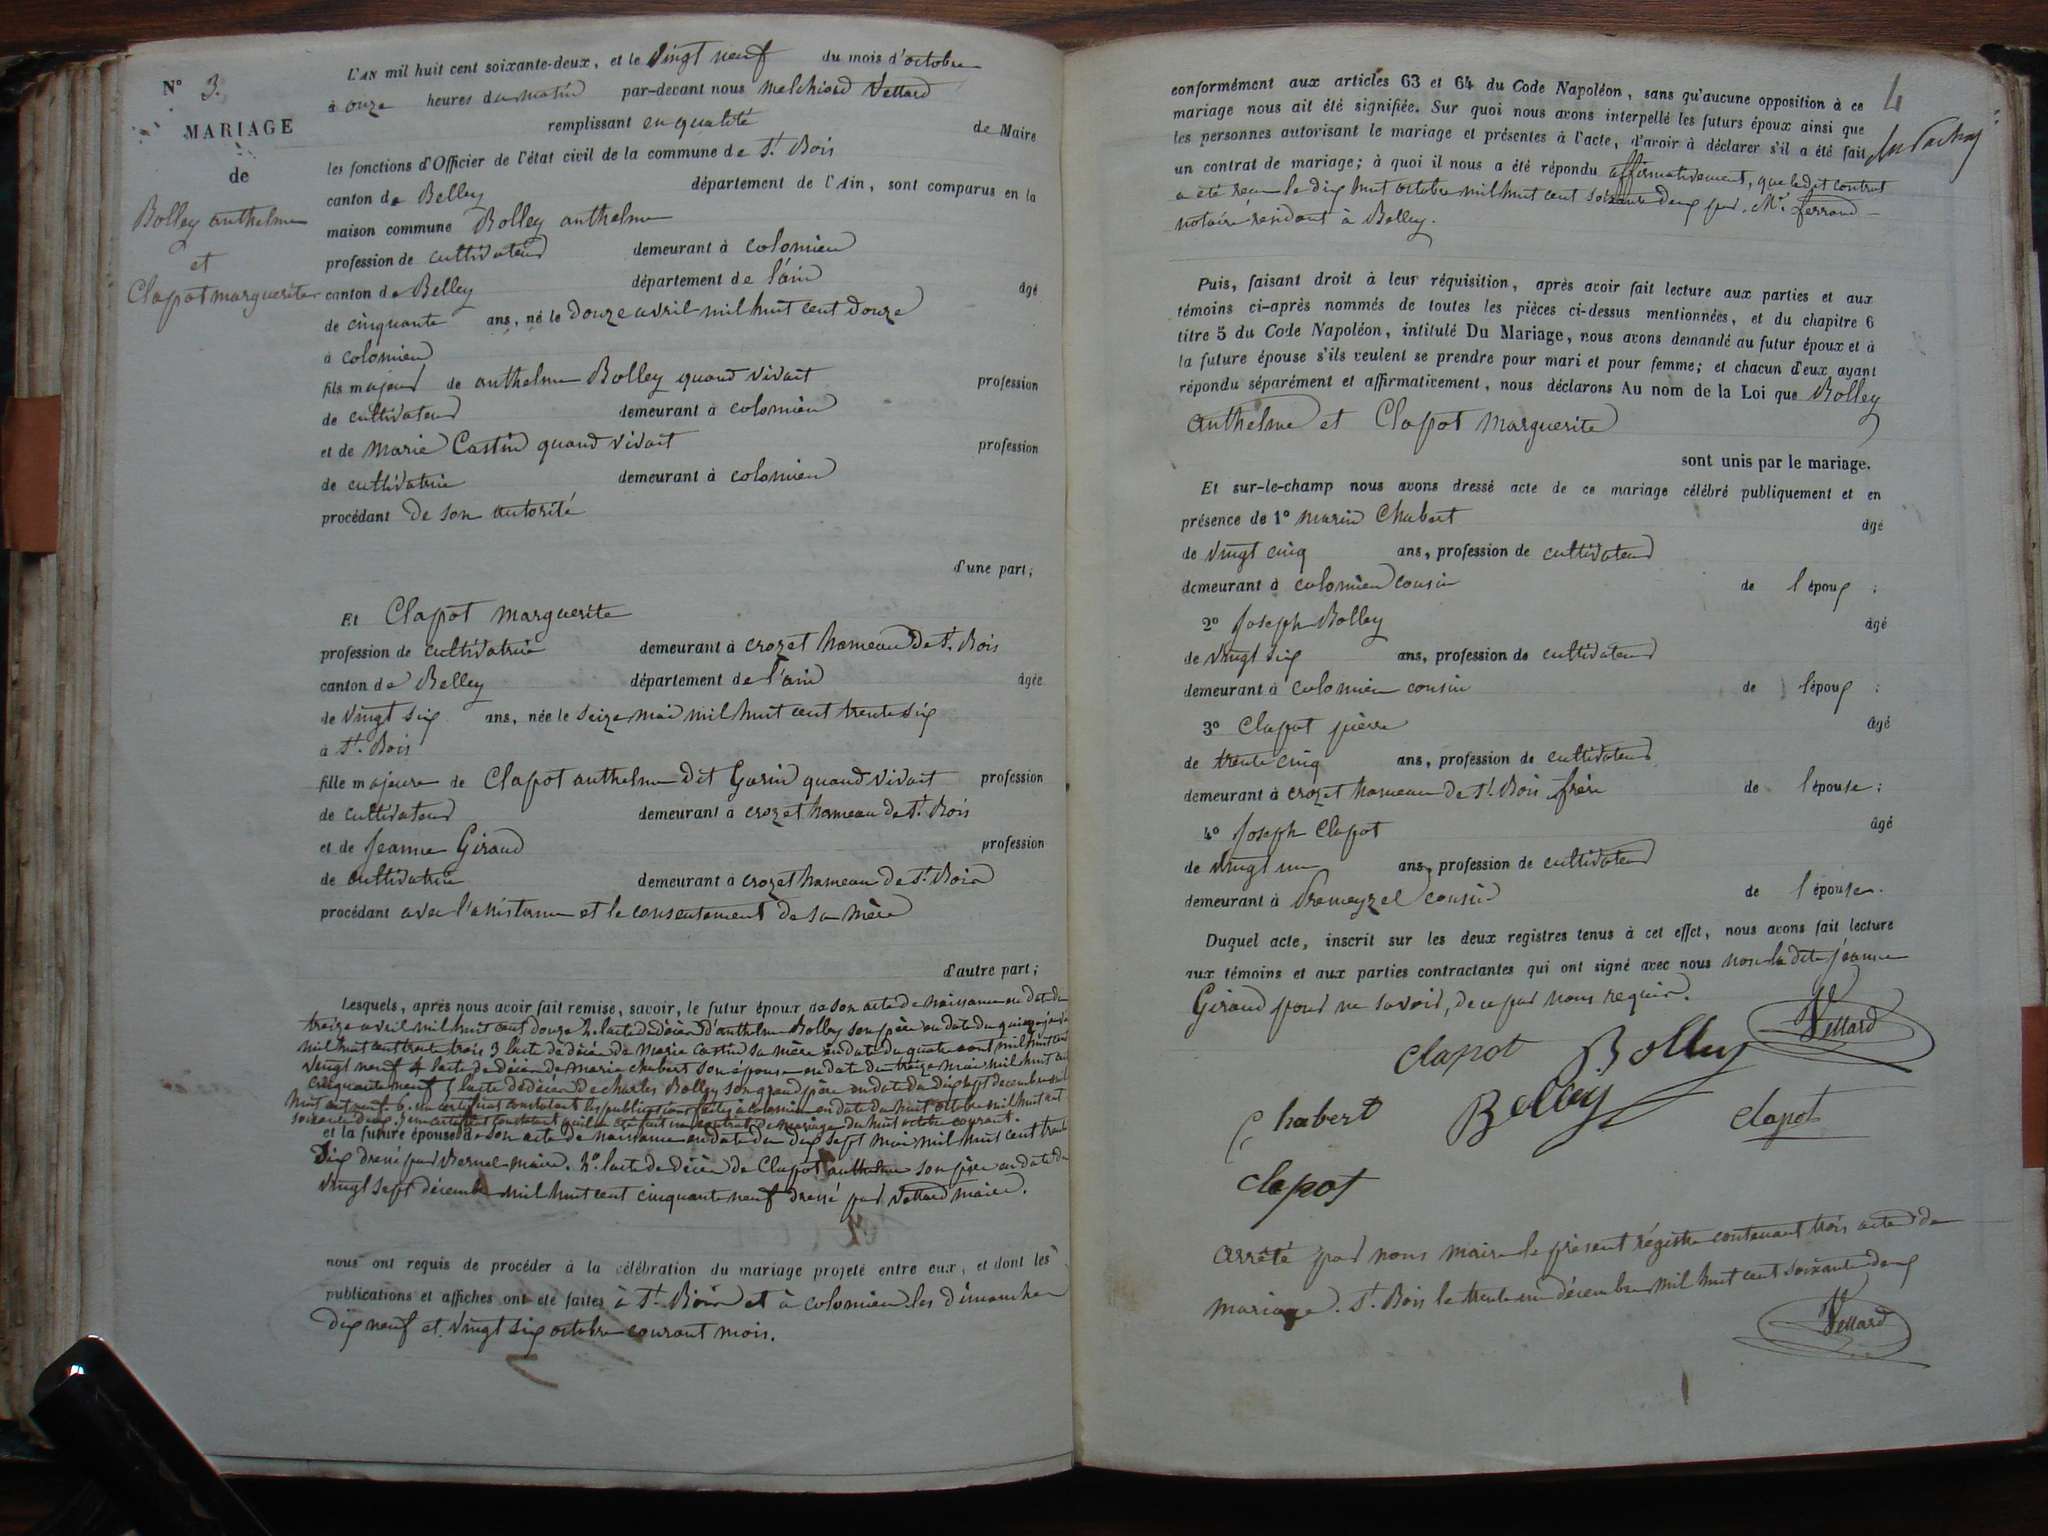 N° 3.
MARIAGE
de
Bolley anthelme
et
Clapot marguerite
L'AN mil huit cent soixante-deux, et le Vingt neuf du mois d'octobre
à onze heures du matin par-devant nous melchiord Vettard
remplissant en qualité de Maire
les fonctions d'Officier de l'état civil de la commune de St. Bois
canton de Belley département de l'Ain, sont comparus en la
maison commune Bolley anthelme
profession de cultivateur demeurant à colomieu
canton de Belley département de l'ain âgé
de cinquante ans, né le douze avril mil huit cent douze
à colomieu
fils majeur de anthelme Bolley quand vivait profession
de cultivateur demeurant à colomieu
et de marie Castin quand vivait profession
de cultivatrice demeurant à colomieu
procédant de son autorité
d'une part;
Et Clapot marguerite
profession de cultivatrice demeurant à crozet hameau de St. Bois
canton de Belley département de l'ain âgée
de vingt six ans, née le seize mai mil huit cent trente six
à St. Bois
fille majeure de Clapot anthelme dit Garin quand vivait profession
de cultivateur demeurant à crozet hameau de St. Bois
et de Jeanne Giraud profession
de cultivatrice demeurant à crozet hameau de St. Bois
procédant avec l'assistance et le consentement de sa mère
d'autre part;
Lesquels, après nous avoir fait remise, savoir, le futur époux de son acte de naissance en date du
treize avril mil huit cent douze 2. l'acte de décès d'anthelme Bolley son père en date du quinze
mil huit cent trente trois 3 l'acte de décès de Marie Castin sa mère en date du quatre aout mil huit cent
vingt neuf 4 l'acte de décès de marie chabert son épouse en date du treize mai mil huit cent
cinquante neuf 5 l'acte de décès de charles Bolley son grand père en date du dix sept decembre mil
huit cent neuf. 6. un certificat constatant les publications faites à colomieu en date du huit octobre mil huit cent
soixante deux. 7 un certificat constatant qu'il a été fait un contrat de mariage du huit octobre courant.
et la future épouse de son acte de naissance en date du dix sept mai mil huit cent trente
six dressé par Vernel maire. 2°. l'acte de décès de Clapot anthelme son père en date du
vingt sept décembre mil huit cent cinquante neuf dressé par Vettard maire.
nous ont requis de procéder à la célébration du mariage projeté entre eux, et dont les
publications et affiches ont été faites à St. Bois et à colomieu les dimanches
dix neuf et vingt six octobre courant mois.
4
conformément aux articles 63 et 64 du Code Napoléon, sans qu'aucune opposition à ce
mariage nous ait été signifiée. Sur quoi nous avons interpellé les futurs époux ainsi que
les personnes autorisant le mariage et présentes à l'acte, d'avoir à déclarer s'il a été fait
un contrat de mariage; à quoi il nous a été répondu affirmativement, que ledit contrat
a été reçu le dix huit octobre mil huit cent soixante deux par Me. ferrand
notaire résidant à Belley.
Puis, faisant droit à leur réquisition, après avoir fait lecture aux parties et aux
témoins ci-après nommés de toutes les pièces ci-dessus mentionnées, et du chapitre 6
titre 5 du Code Napoléon, intitulé Du Mariage, nous avons demandé au futur époux et à
la future épouse s'ils veulent se prendre pour mari et pour femme; et chacun d'eux ayant
répondu séparément et affirmativement, nous déclarons Au nom de la Loi que Bolley
anthelme et Clapot Marguerite
sont unis par le mariage.
Et sur-le-champ nous avons dressé acte de ce mariage célébré publiquement et en
présence de 1° marin Chabert âgé
de vingt cinq ans, profession de cultivateur
demeurant à colomieu cousin de l'époux ;
2° Joseph Bolley âgé
de vingt six ans, profession de cultivateur
demeurant à colomieu cousin de l'époux ;
3° Clapot pierre âgé
de trente cinq ans, profession de cultivateur
demeurant à crozet hameau de St. Bois frère de l'épouse;
4° Joseph Clapot âgé
de vingt un ans, profession de cultivateur
demeurant à Premeyzel cousin de l'épouse.
Duquel acte, inscrit sur les deux registres tenus à cet effet, nous avons fait lecture
aux témoins et aux parties contractantes qui ont signé avec nous non la dite jeanne
Giraud pour ne savoir, de ce par nous requise.
Vettard
Clapot Bolley
Chabert Bolley Clapot
Clapot
Arrêté par nous maire le présent régistre contenant trois actes de
mariage. St. Bois le trente un décembre mil huit cent soixante deux
Vettard